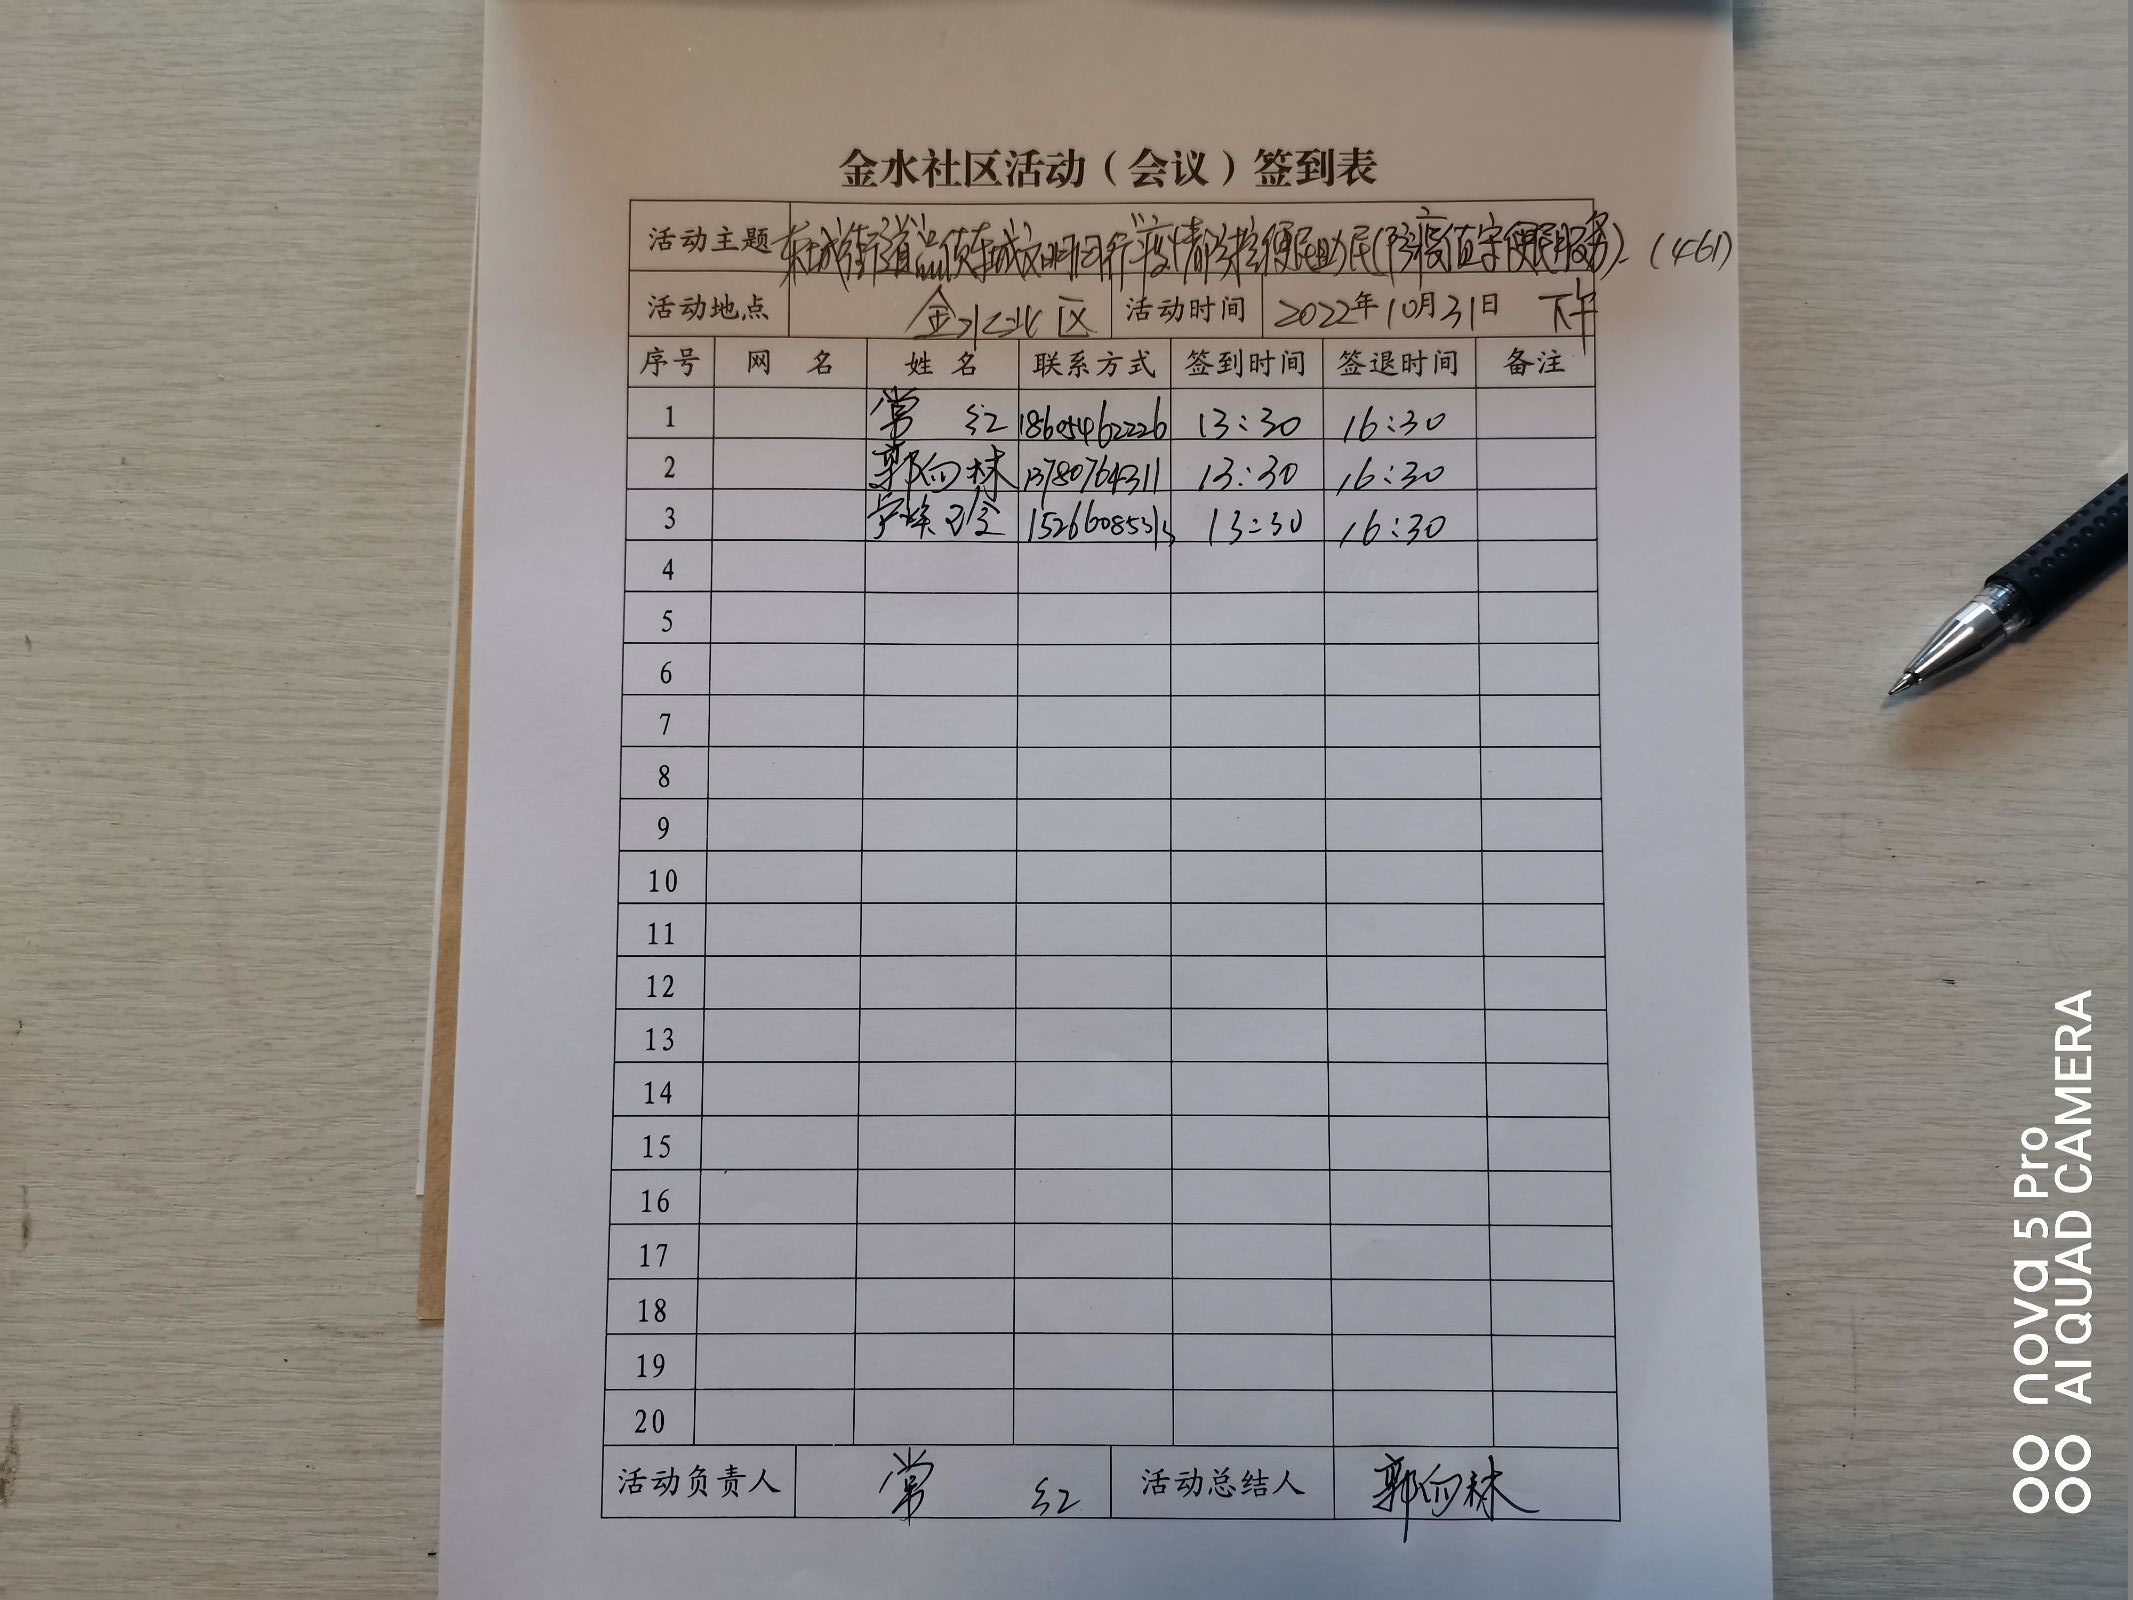 金水社区活动（会议）签到表
活动主题 东城街道点侦东城文明同行"疫情防控便民助民(防疫值守便民服务)-(461)
活动地点 金水北区 活动时间 2022年10月31日 下午
序号 网 名 姓 名 联系方式 签到时间 签退时间 备注
1 常 红 18605462226 13:30 16:30
2 郭向林 13780764311 13:30 16:30
3 13:30 16:30
4
5
6
7
8
9
10
11
12
13
14
15
16
17
18
19
20
活动负责人 常 红 活动总结人 郭向林
nova 5 Pro
AI QUAD CAMERA